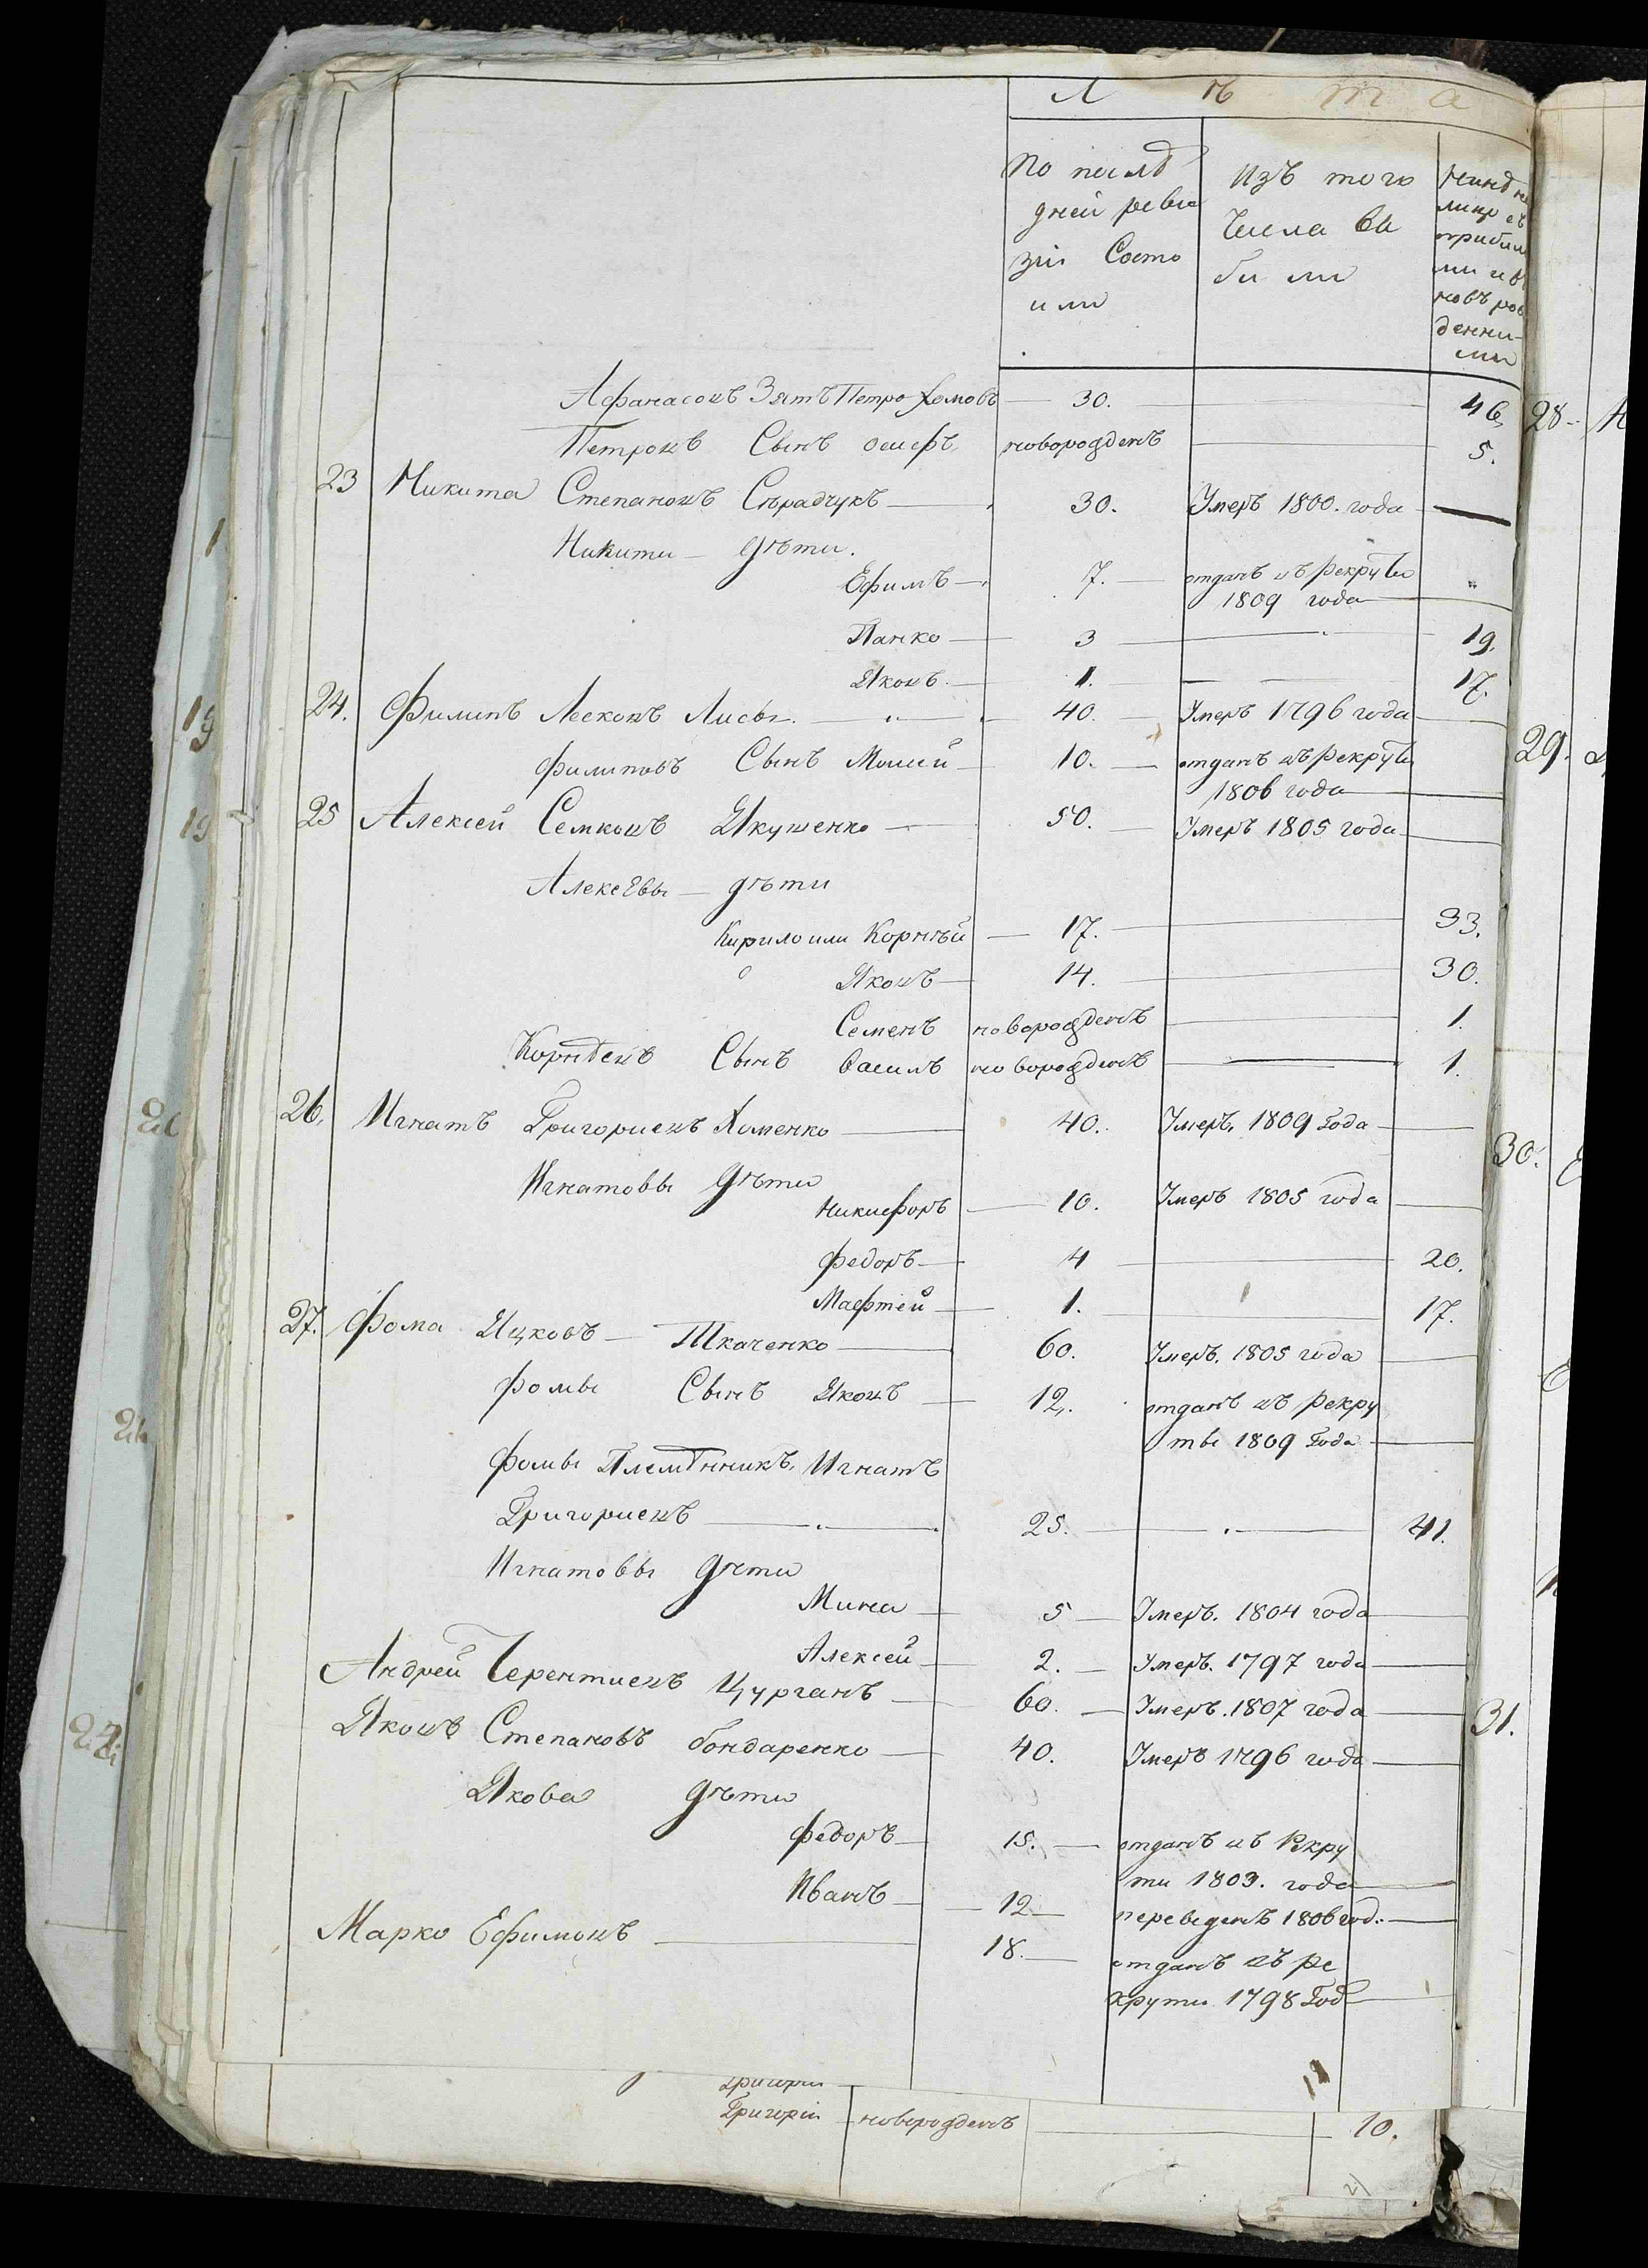 Лѣта
По послѣ
дней реви
зіи Состо
яли
Изъ того
Числа вы
были
Ныне на
лицо съ
прибыли
ми и в
новь рож
денны-
ми
Афанасовъ Зять Петро Хомовъ 30. 46
Петровъ Сынъ осифъ новорожденъ 5.
23 Никита Степановъ Сѣрадчукъ 30. Умеръ 1800. года
Никиты дѣти.
Ефимъ 7. отданъ въ рекруты
1809 года
Панко 3 19.
Яковъ 1. 17.
24. Филипъ Лесковъ Лисы 40. Умеръ 1796 года
филиповъ Сынъ Мосий 10. отданъ въ рекруты
1806 года
25 Алексей Семковъ Якушенко 50. Умеръ 1805 года
АлексЕвы дѣти
Кирило или Корнѣй 17. 33.
Яковъ 14. 30.
Семенъ новорожденъ 1.
Корнѣевъ Сынъ Василь новорожденъ 1.
26. Игнатъ Григориевъ Хоменко 40. Умеръ. 1809 Года
Игнатовы дѣти
Никифоръ 10. Умеръ 1805 года
федоръ 4 20.
Мафтей 1. 17.
27. Фома Яцковъ Ткаченко 60. Умеръ. 1805 года
фомы Сынъ Яковъ 12. отданъ въ рекру
ты 1809 Года
фомы Племѣнникъ Игнатъ
Григориевъ 25. 41.
Игнатовы дѣти
Мина 5 Умеръ. 1804 года
Алексей 2. Умеръ. 1797 года
Андрей Терентиевъ Цурганъ 60. Умеръ. 1807 года
Яковъ Степановъ бондаренко 40. Умеръ 1796 года
Якова дѣти
федоръ 15. отданъ въ Рекру
ты 1803. года
Иванъ 12 переведенъ 1806 год.
Марко Ефимовъ 18. отданъ въ ре
круты 1798 Год
Григорій
Григорій новорожденъ 10.
28.
29.
30.
31.
1
19
19